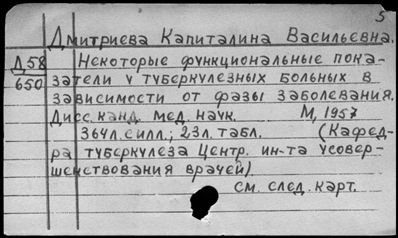 5
Дмитриева Капиталина Васильевна.
Д58 Некоторые функциональные пока-
650 затели у туберкулезных больных в
зависимости от фазы заболевания.
Дисс. канд. мед. наук. М, 1957
364л. с илл.; 23л. табл. (Кафед-
ра туберкулеза Центр. ин-та усовер-
шенствования врачей)
см. след. карт.